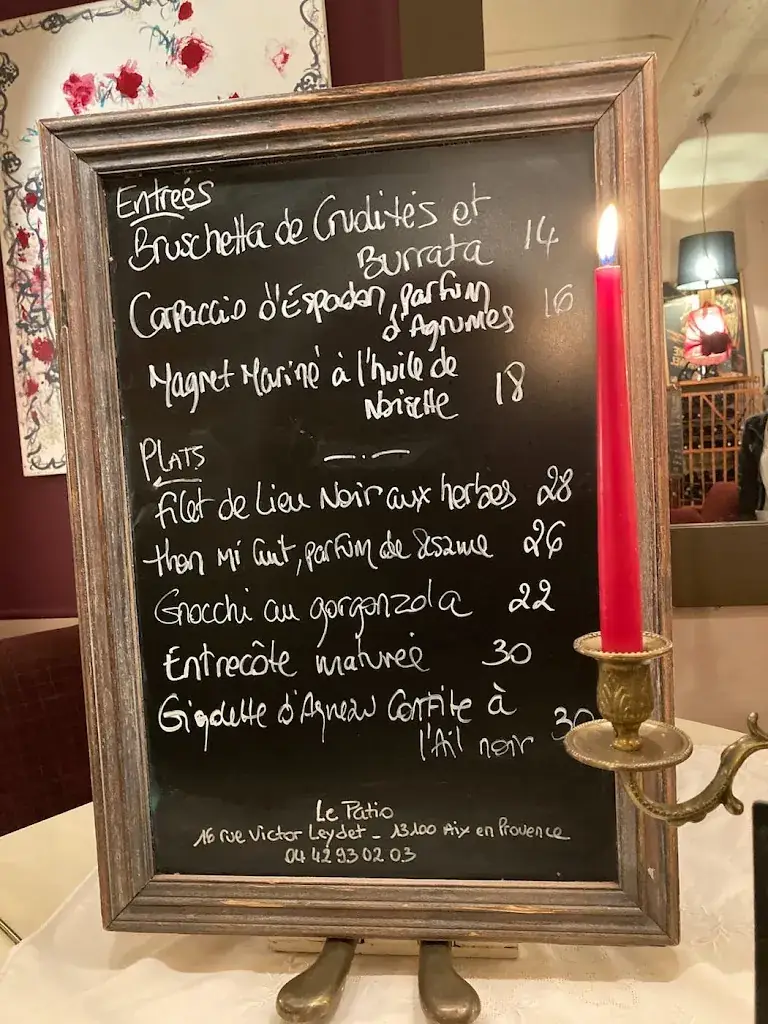 Entreés
Bruschetta de Crudités et
Burrata 14
Carpaccio d'Espadon, parfum 16
d'Agrumes
Magret Mariné à l'huile de
Noisette 18
PLATS
filet de Lieu Noir aux herbes 28
thon Mi Cuit, parfum de Sésame 26
Gnocchi au gorgonzola 22
Entrecôte maturée 30
Gigolette d'Agneau Confite à
l'Ail noir 30
Le Patio
16 rue Victor Leydet - 13100 Aix en Provence
04 42 93 02 03